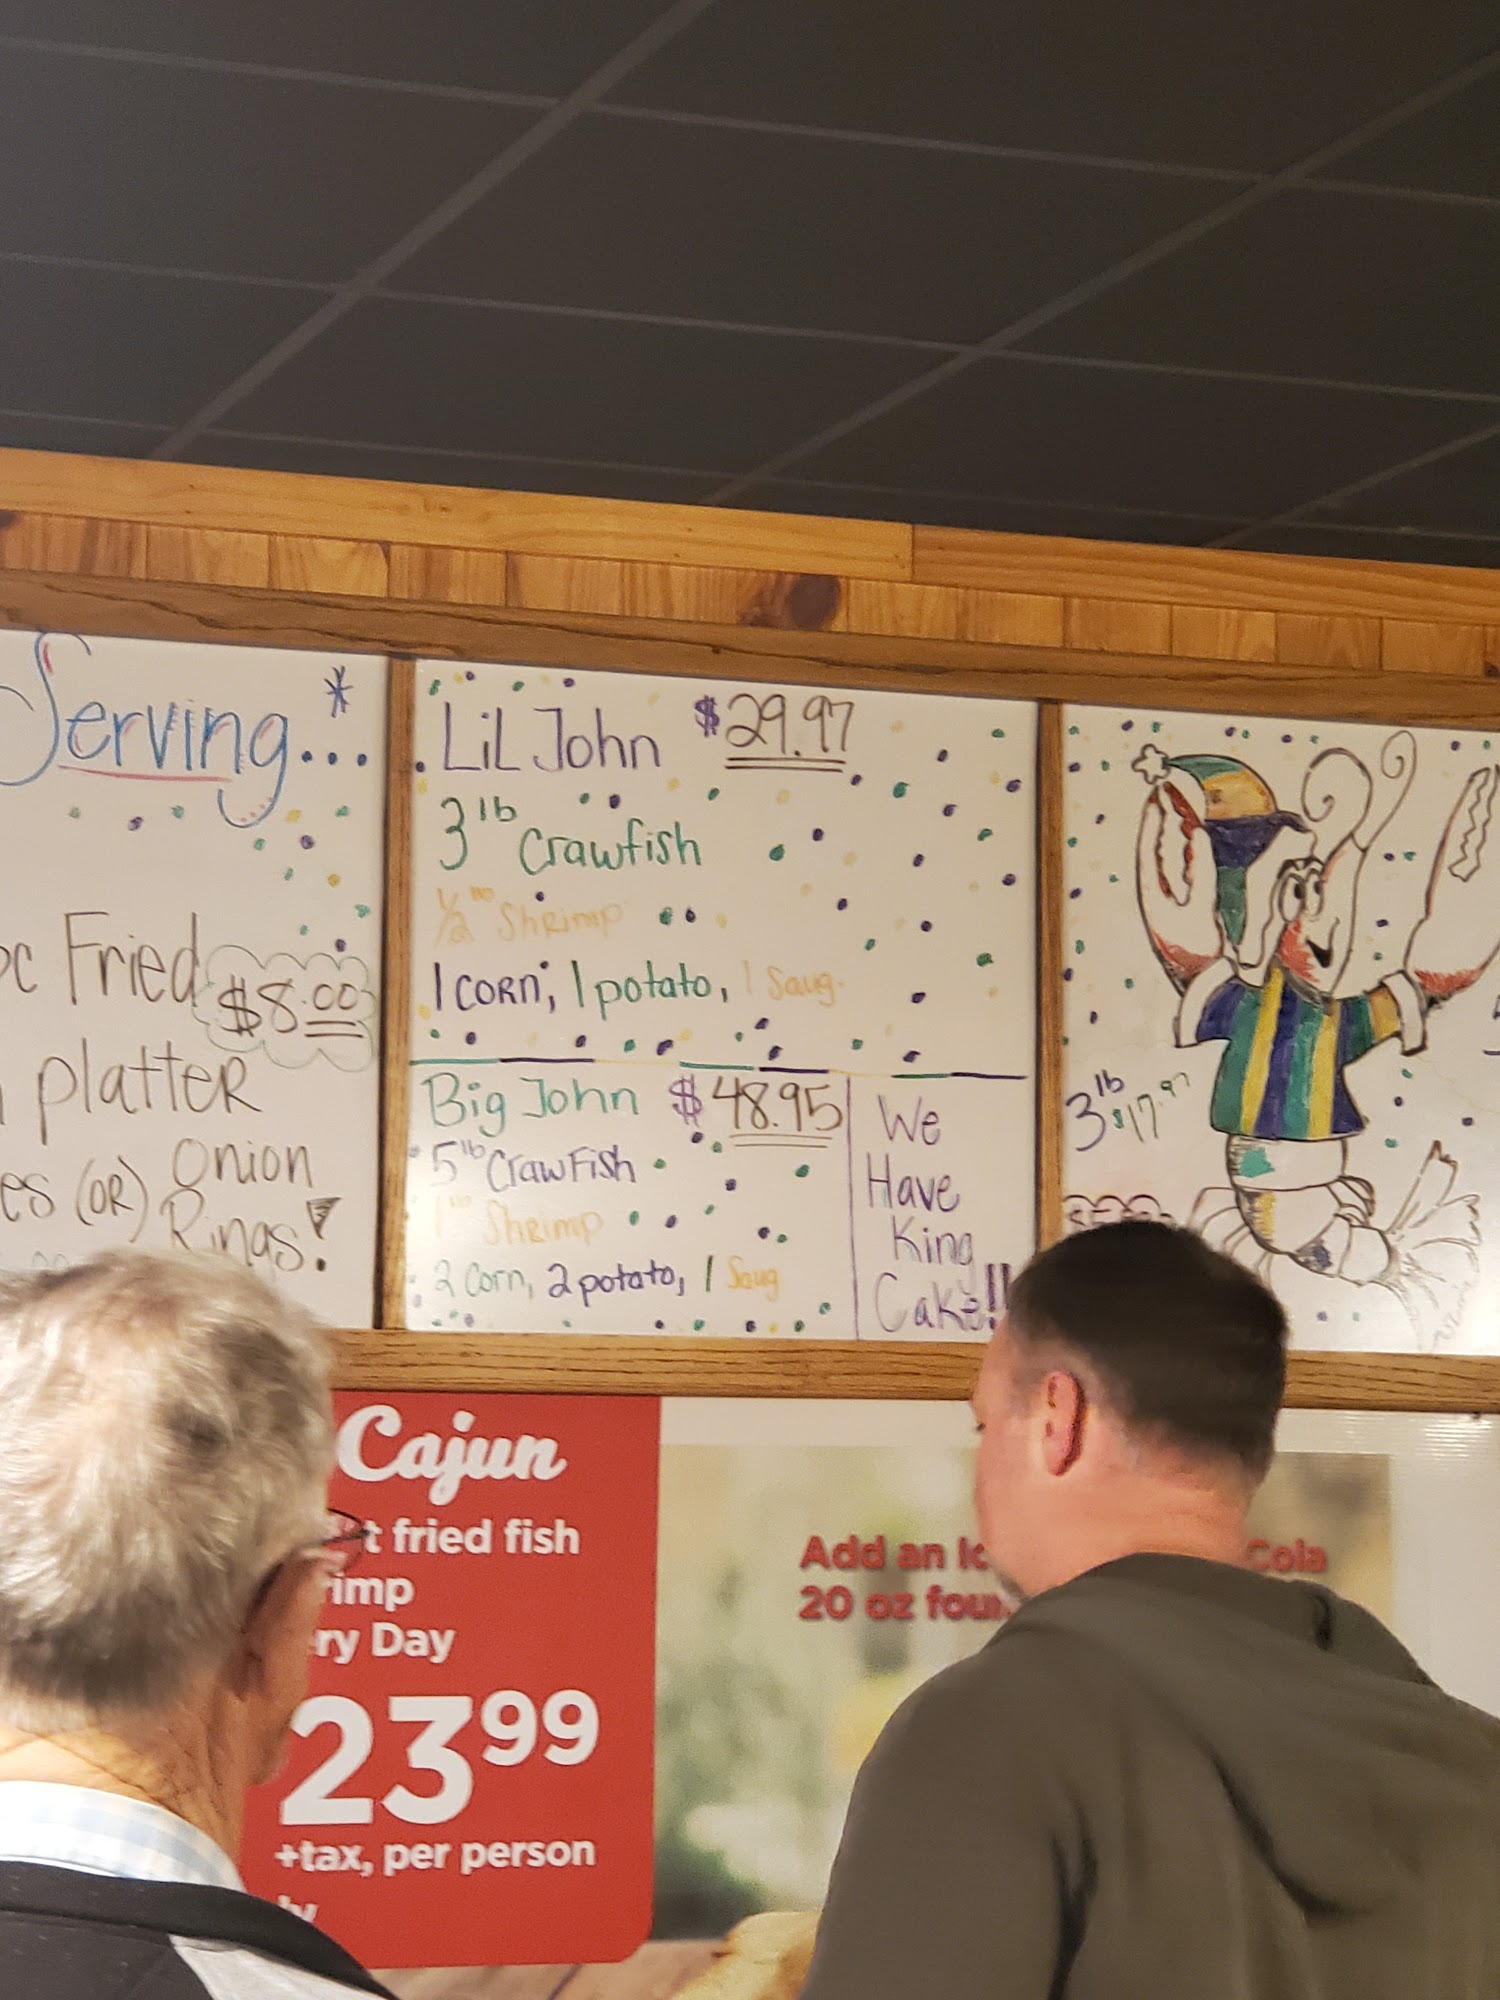 Serving...*
Fried $8.00
platter
(OR) Onion
Rings!
Lil John $29.97
3 lb Crawfish
1/2 Shrimp
1 corn, 1 potato, 1 Saug.
Big John $48.95
5 lb Crawfish
1 lb Shrimp
2 corn, 2 potato, 1 Saug
We
Have
King
Cake!!
3 lb $17.97
Cajun
fried fish
Day
23 99
+tax, per person
Add an Cola
20 oz